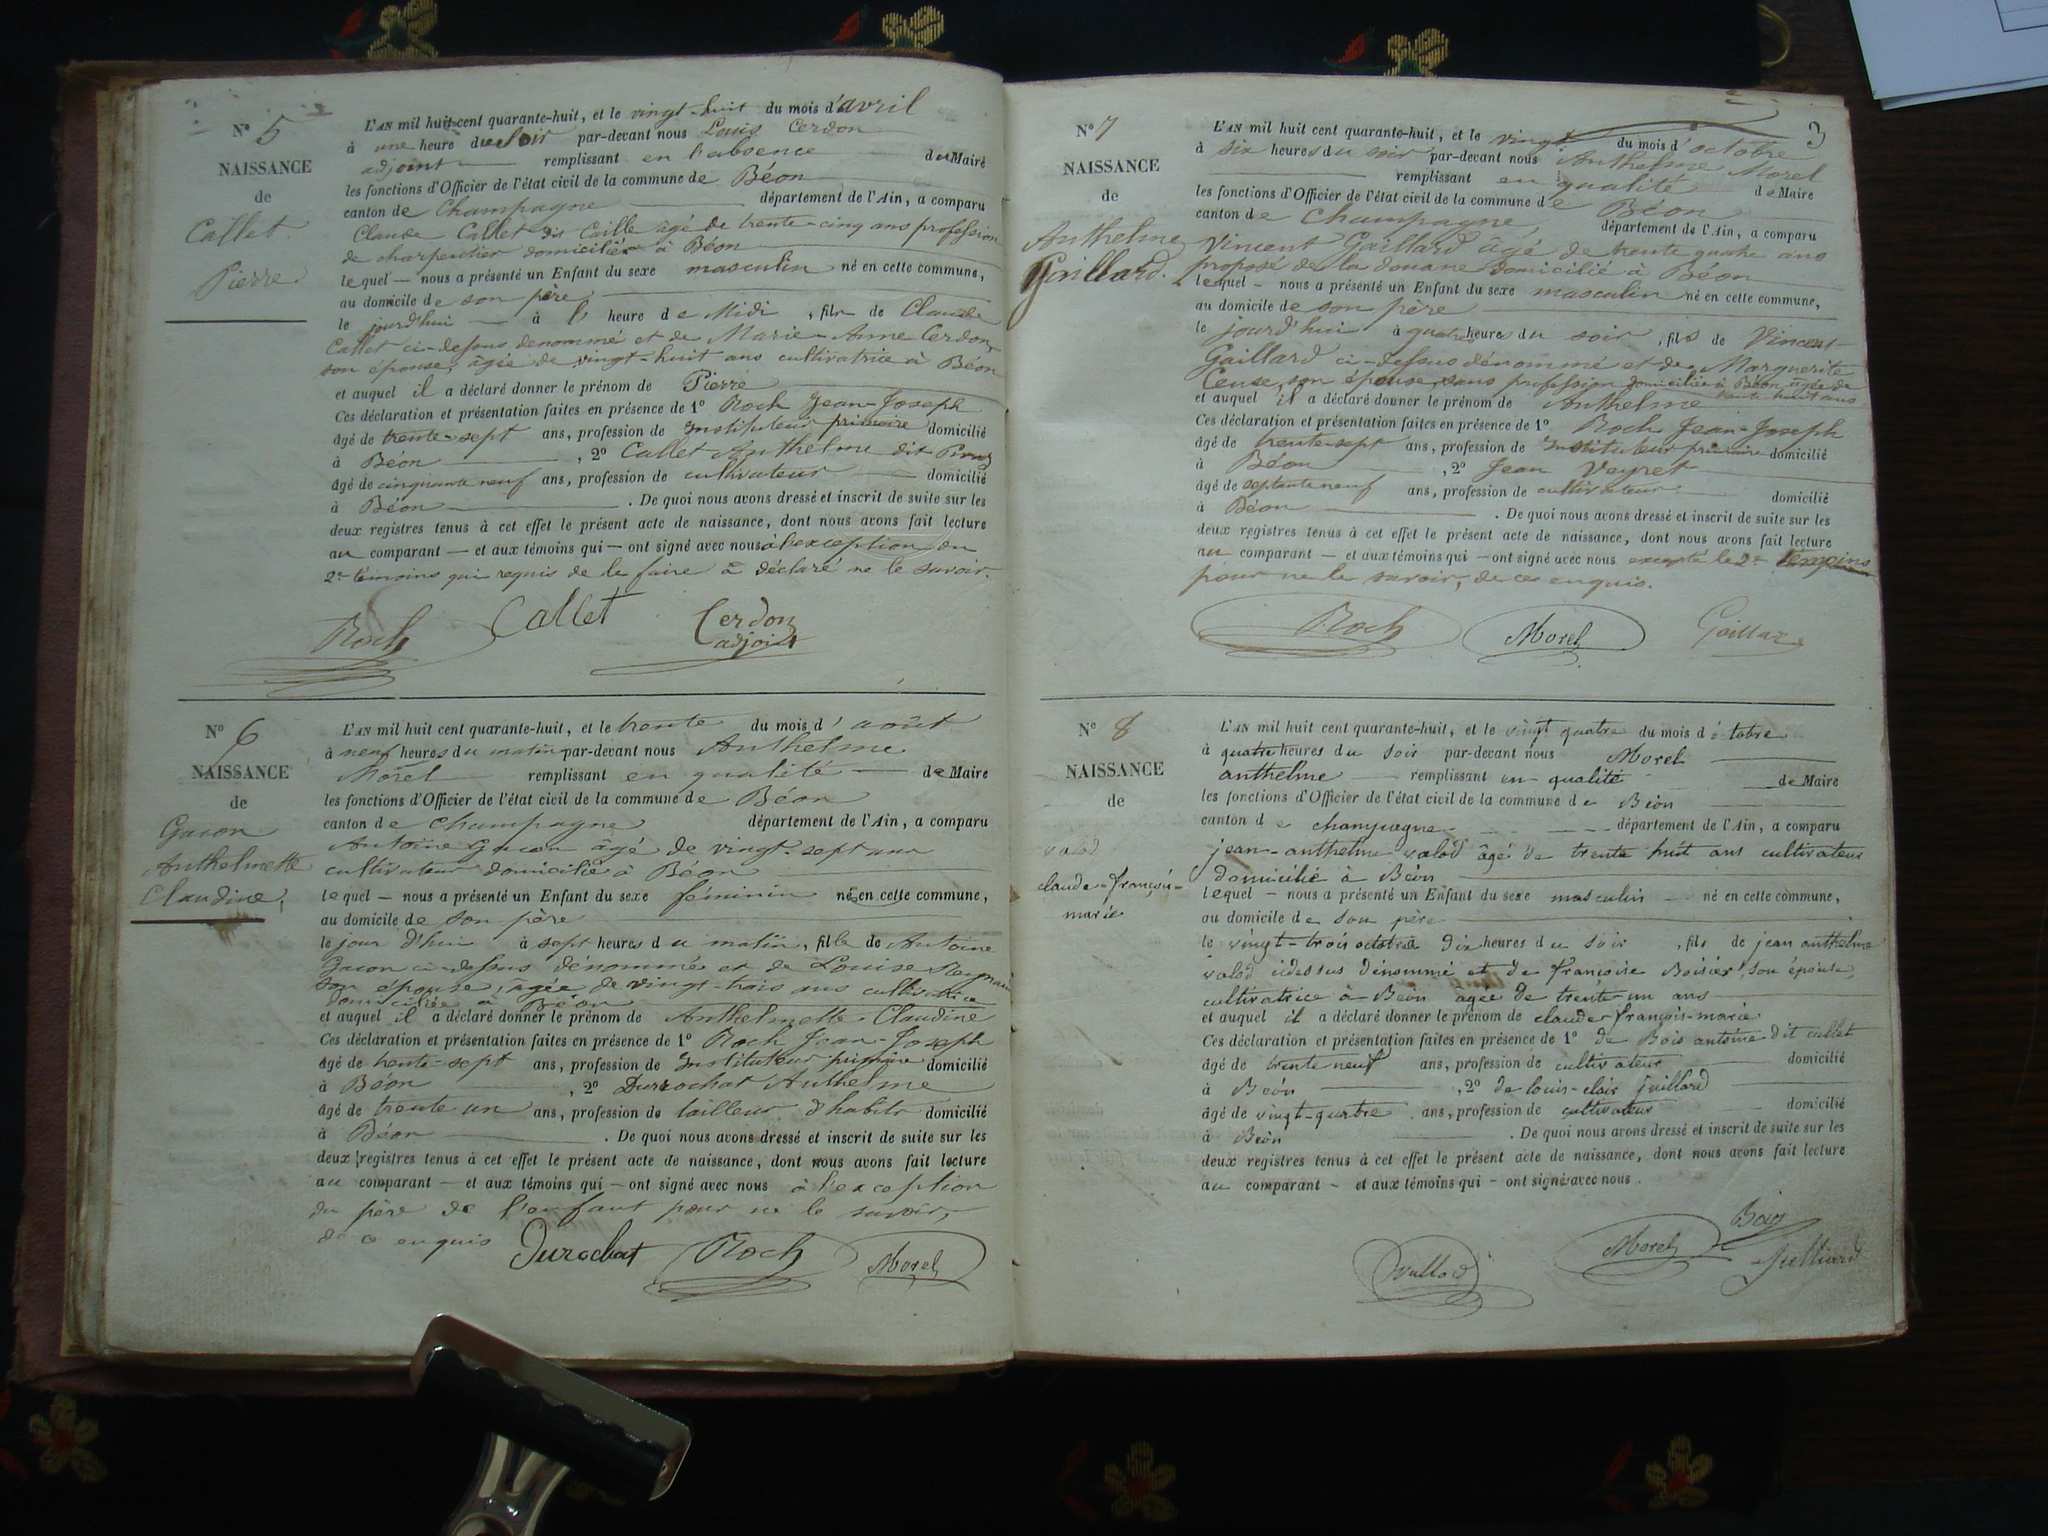 N° 5
NAISSANCE
de
Callet
Pierre
L'AN mil huit cent quarante-huit, et le vingt-huit du mois d'avril
à une heure du soir par-devant nous Louis Cerdon
adjoint remplissant en l'absence du Maire
les fonctions d'Officier de l'état civil de la commune de Béon
canton de Champagne département de l'Ain, a comparu
Claude Callet dit Caille âgé de trente-cinq ans profession
de charpentier domicilié à Béon
lequel — nous a présenté un Enfant du sexe masculin né en cette commune,
au domicile de son père
le jourd'hui à heure de Midi, fils de Claude
Callet ci-dessus dénommé et de Marie-Anne Cerdon,
son épouse, âgée de vingt-huit ans cultivatrice à Béon
et auquel il a déclaré donner le prénom de Pierre
Ces déclaration et présentation faites en présence de 1° Roch Jean-Joseph
âgé de trente-sept ans, profession de Instituteur primaire domicilié
à Béon, 2° Callet Anthelme dit
âgé de cinquante neuf ans, profession de cultivateur domicilié
à Béon. De quoi nous avons dressé et inscrit de suite sur les
deux registres tenus à cet effet le présent acte de naissance, dont nous avons fait lecture
au comparant — et aux témoins qui — ont signé avec nous à l'exception du
2e témoins qui requis de le faire a déclaré ne le savoir.
Roch Callet Cerdon
adjoint
N° 6
NAISSANCE
de
Gacon
Anthelmette
Claudine
L'AN mil huit cent quarante-huit, et le trente du mois d'août
à neuf heures du matin par-devant nous Anthelme
Morel remplissant en qualité de Maire
les fonctions d'Officier de l'état civil de la commune de Béon
canton de Champagne département de l'Ain, a comparu
Antoine Gacon âgé de vingt-sept ans
cultivateur domicilié à Béon
lequel — nous a présenté un Enfant du sexe féminin née en cette commune,
au domicile de son père
le jour d'hui à sept heures du matin, fille de Antoine
Gacon ci-dessus dénommé et de Louise
son épouse, âgée de vingt-trois ans cultivatrice
domiciliée à Béon
et auquel il a déclaré donner le prénom de Anthelmette-Claudine
Ces déclaration et présentation faites en présence de 1° Roch Jean-Joseph
âgé de trente-sept ans, profession de Instituteur primaire domicilié
à Béon, 2° Durochat Anthelme
âgé de trente un ans, profession de tailleur d'habits domicilié
à Béon. De quoi nous avons dressé et inscrit de suite sur les
deux registres tenus à cet effet le présent acte de naissance, dont nous avons fait lecture
au comparant — et aux témoins qui — ont signé avec nous à l'exception
du père de l'enfant pour ne le savoir,
de ce enquis Durochat Roch Morel
3
N° 7
NAISSANCE
de
Anthelme
Gaillard.
L'AN mil huit cent quarante-huit, et le vingt du mois d'octobre
à six heures du soir par-devant nous Anthelme Morel
remplissant en qualité de Maire
les fonctions d'Officier de l'état civil de la commune de Béon
canton de Champagne département de l'Ain, a comparu
Vincent Gaillard âgé de trente quatre ans
préposé de la douane domicilié à Béon
lequel — nous a présenté un Enfant du sexe masculin né en cette commune,
au domicile de son père
le jourd'hui à quatre heures du soir, fils de Vincent
Gaillard ci-dessus dénommé et de Marguerite
Ceuse, son épouse, sans profession domiciliée à Béon âgée de
trente huit ans
et auquel il a déclaré donner le prénom de Anthelme
Ces déclaration et présentation faites en présence de 1° Roch Jean-Joseph
âgé de trente-sept ans, profession de Instituteur primaire domicilié
à Béon, 2° Jean Veyret
âgé de septante neuf ans, profession de cultivateur domicilié
à Béon. De quoi nous avons dressé et inscrit de suite sur les
deux registres tenus à cet effet le présent acte de naissance, dont nous avons fait lecture
au comparant — et aux témoins qui — ont signé avec nous excepté le 2e témoins
pour ne le savoir, de ce enquis.
Roch Morel Gaillar
N° 8
NAISSANCE
de
valod
claude-françois-
marie
L'AN mil huit cent quarante-huit, et le vingt quatre du mois d'octobre
à quatre heures du soir par-devant nous Morel
anthelme remplissant en qualité de Maire
les fonctions d'Officier de l'état civil de la commune de Béon
canton de champagne département de l'Ain, a comparu
jean-anthelme valod âgé de trente huit ans cultivateur
domicilié à Béon
lequel — nous a présenté un Enfant du sexe masculin né en cette commune,
au domicile de son père
le vingt-trois octobre dix heures du soir, fils de jean anthelme
valod cidessus dénommé et de françoise Boisier, son épouse,
cultivatrice à Béon agée de trente-un ans
et auquel il a déclaré donner le prénom de claude-françois-marie
Ces déclaration et présentation faites en présence de 1° de Bois antoine dit callet
âgé de trente neuf ans, profession de cultivateur domicilié
à Béon, 2° de louis-clair juillard
âgé de vingt-quatre ans, profession de cultivateur domicilié
à Béon. De quoi nous avons dressé et inscrit de suite sur les
deux registres tenus à cet effet le présent acte de naissance, dont nous avons fait lecture
au comparant — et aux témoins qui — ont signé avec nous.
Vallod Morel Bois
Juilliard